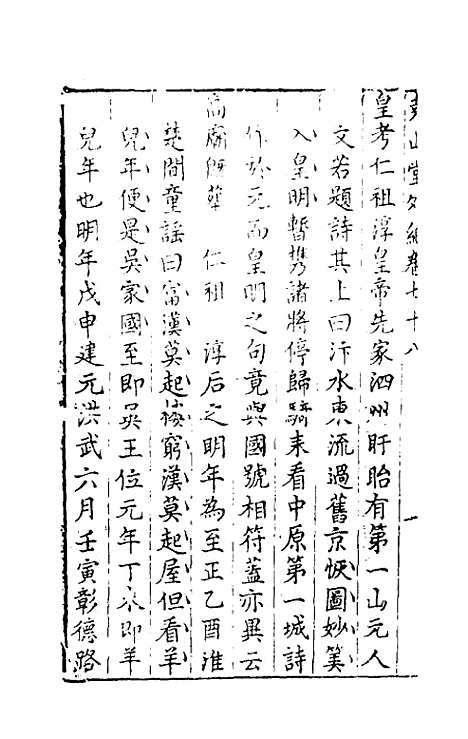 堯山堂外紀卷七十八 一
皇考仁祖淳皇帝先家泗州盱眙有第一山元人
文若題詩其上曰汴水東流過舊京恢圖妙筭
入皇明暫携諸將停歸騎来看中原第一城詩
作於元而皇明之句竟與國號相符蓋亦異云
高廟既葬 仁祖 淳后之明年為至正乙酉淮
楚間童謡曰富漢莫起樓窮漢莫起屋但看羊
兒年便是吳家國至即吳王位元年丁未即羊
兒年也明年戊申建元洪武六月壬寅彰德路